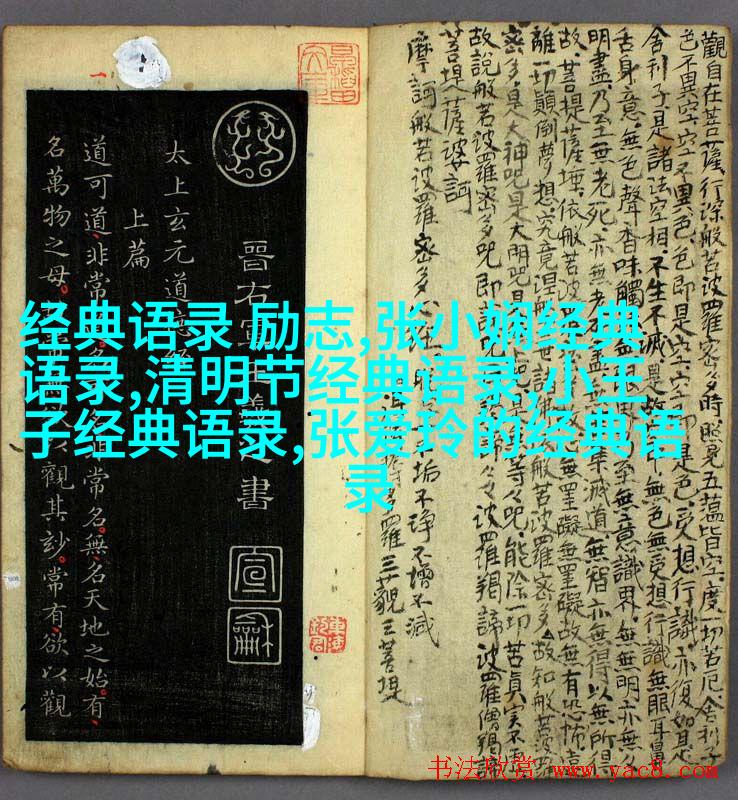 觀自在菩薩行深般若波羅密多時照見五蘊皆空度一切苦厄舍利子
色不異空空不異色色即是空空即是色受想行識亦復如是
舍利子是諸法空相不生不滅是故無色無受想行識無眼耳鼻
舌身意無色聲香味觸至無意識界無無明亦無
明盡乃至無老死亦無老滅道無智亦無得以無所得
故菩提薩埵依般若波無罣礙無罣礙故無有恐怖遠
離一切顛倒夢想究竟涅羅密多故知般若波
密多是大神咒是大明咒是等々咒能除一切苦真实不
故說般若波羅密多咒即說波羅羯諦波羅僧羯諦
菩提薩婆訶
摩訶般若波羅密多垢不淨不增不減
羅三藐三菩提
晉右軍王書
宣
龢
太上玄元道
上篇
道可道非常常名無名天地之始有
名萬物之母觀其妙常有欲以觀
经典语录 励志,张小娴经典
语录,清明节经典语录,小王
子经典语录,张爱玲的经典语
录
书法欣赏 www.yac8.com